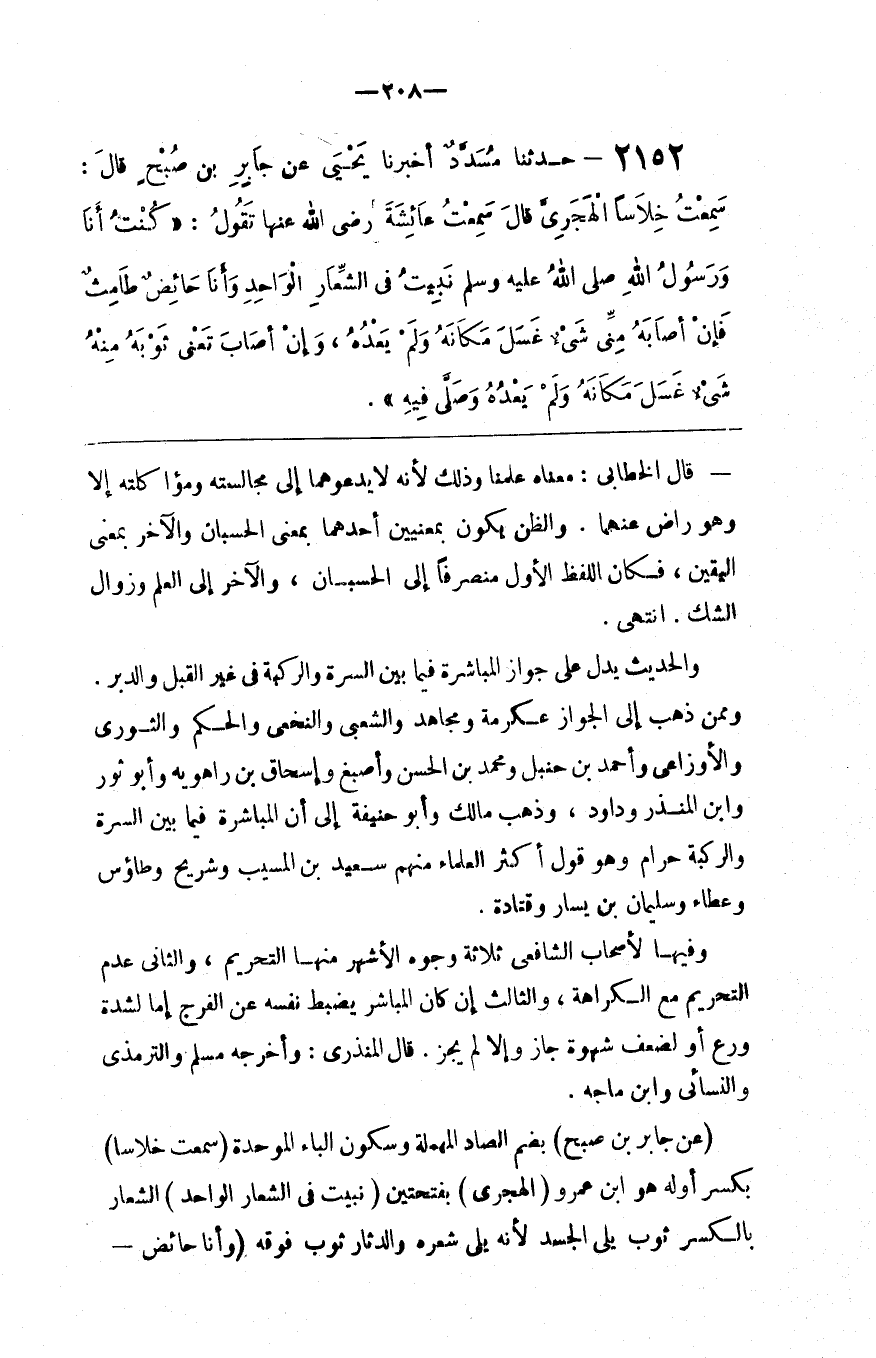 —٢٠٨—
٢١٥٢ – حـدثنا مُسَدَّدٌ أخبرنا يَحْيَى عن جاَبِرِ بن صُبْحٍ قالَ :
سَمِعْتُ خِلَاساً الْهَجَرِىَّ قالَ سَمِعْتُ عاَئِشَةَ رضى الله عنها تَقُولُ : « كُنْتُ أَنَا
وَرَسُولُ اللهِ صلى اللهُ عليه وسلم نَبِيتُ فى الشِّعَارِ الْوَاحِدِ وَأَنَا حَائِضٌ طَامِثٌ
فَإِنْ أصَابَهُ مِنِّى شَىْءٌ غَسَلَ مَكَانَهُ وَلَمْ يَعْدُهُ ، وَإِنْ أصَابَ تَعْنى ثَوْبَهُ مِنْهُ
شَىْءٌ غَسَلَ مَكَانَهُ وَلَمْ يَعْدُهُ وَصَلَّى فِيهِ » .
— قال الخطابى : معناه علمنا وذلك لأنه لايدعوهما إلى مجالسته ومؤاكلته إلا
وهو راض عنهما . والظن يكون بمعنيين أحدهما بمعنى الحسبان والآخر بمعنى
اليقين ، فـكان اللفظ الأول منصرفاً إلى الحسبـان ، والآخر إلى العلم وزوال
الشك . انتهى .
والحديث يدل على جواز المباشرة فيما بين السرة والركبة فى غير القبل والدبر .
وممن ذهب إلى الجواز عـكرمة ومجاهد والشعبى والنخعى والحـكم والثـورى
والأوزاعى وأحمد بن حنبل ومحمد بن الحسن وأصبغ وإسحاق بن راهويه وأبو ثور
وابن المنـذر وداود ، وذهب مالك وأبو حنيفة إلى أن المباشرة فيما بين السرة
والركبة حرام وهو قول أكثر العلماء منهم سـعيد بن المسيب وشريح وطاؤس
وعطاء وسليمان بن يسار وقتادة .
وفيهـا لأصحاب الشافعى ثلاثة وجوه الأشهر منهـا التحريم ، والثانى عدم
التحريم مع الـكراهة ، والثالث إن كان المباشر يضبط نفسه عن الفرج إما لشدة
ورع أو لضعف شهوة جاز وإلا لم يجز . قال المنذرى : وأخرجه مسلم والترمذى
والنسائى وابن ماجه .
(عن جابر بن صبح) بضم الصاد المهملة وسكون الباء الموحدة (سمعت خلاسا)
بكسر أوله هو ابن عمرو ( الهجرى ) بفتحتين ( نبيت فى الشعار الواحد ) الشعار
بالـكسر ثوب يلى الجسد لأنه يلى شعره والدثار ثوب فوقه (وأنا حائض —